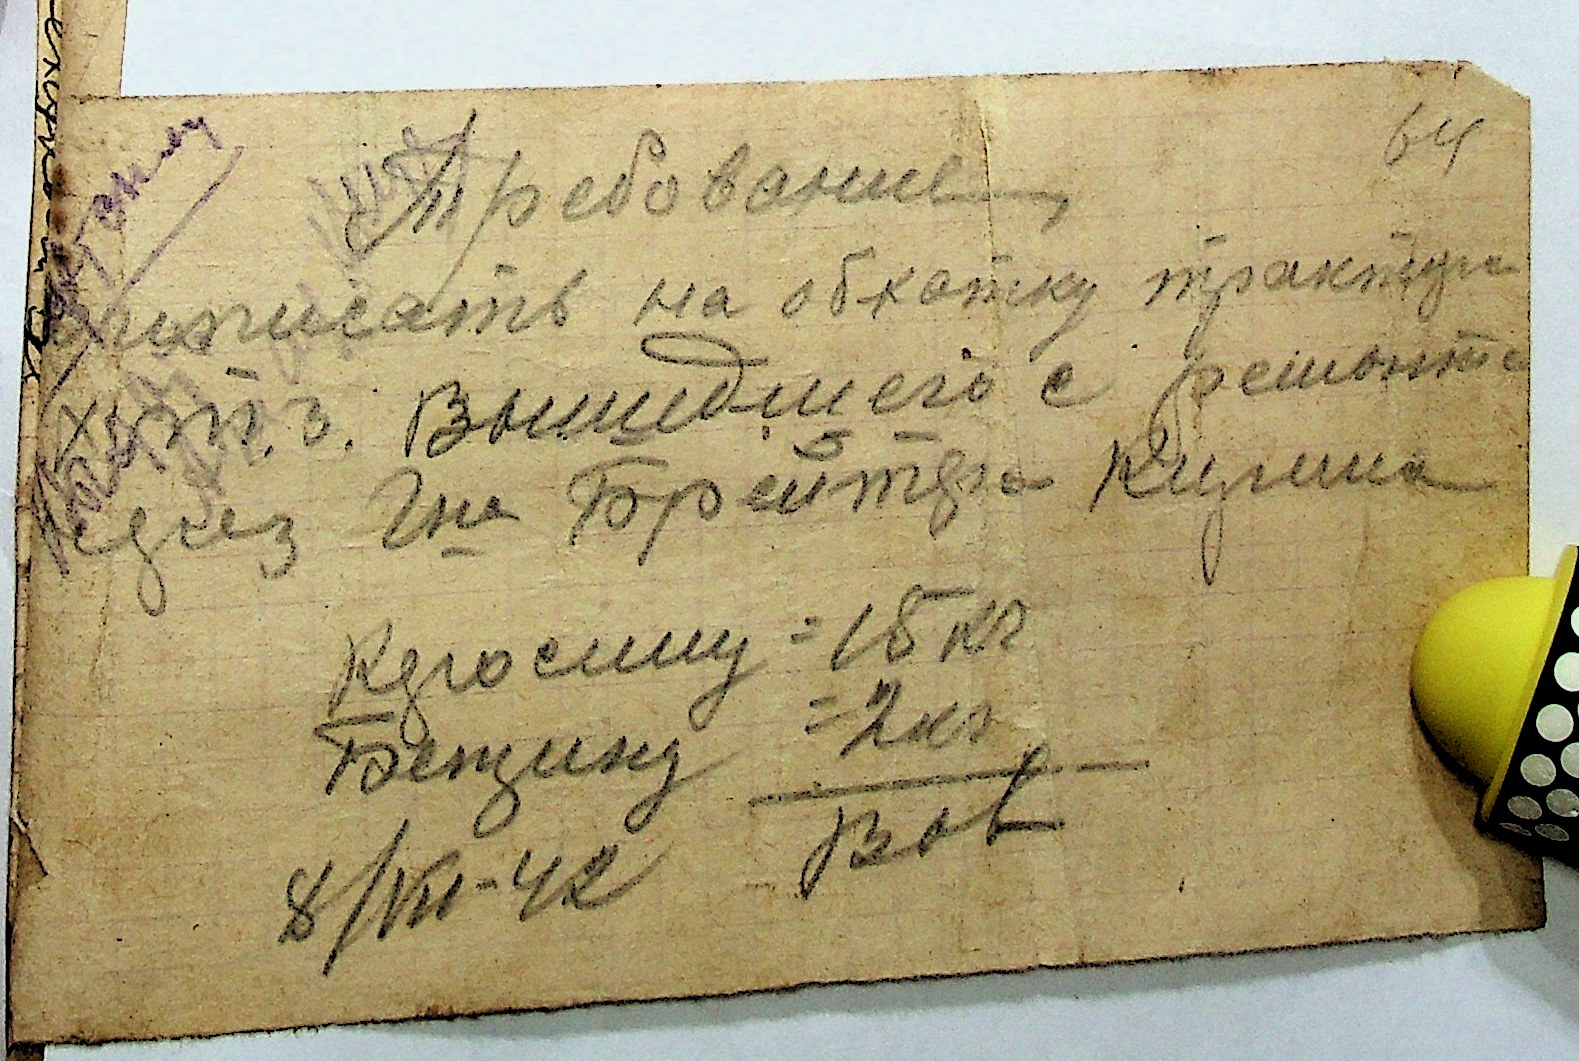 64
Требование
выписать на обкатку трактора
х.т.з. Вышедшего с ремонта
через на
Керосину = 15 кг
Бензину = 2 кг
8/VII-42